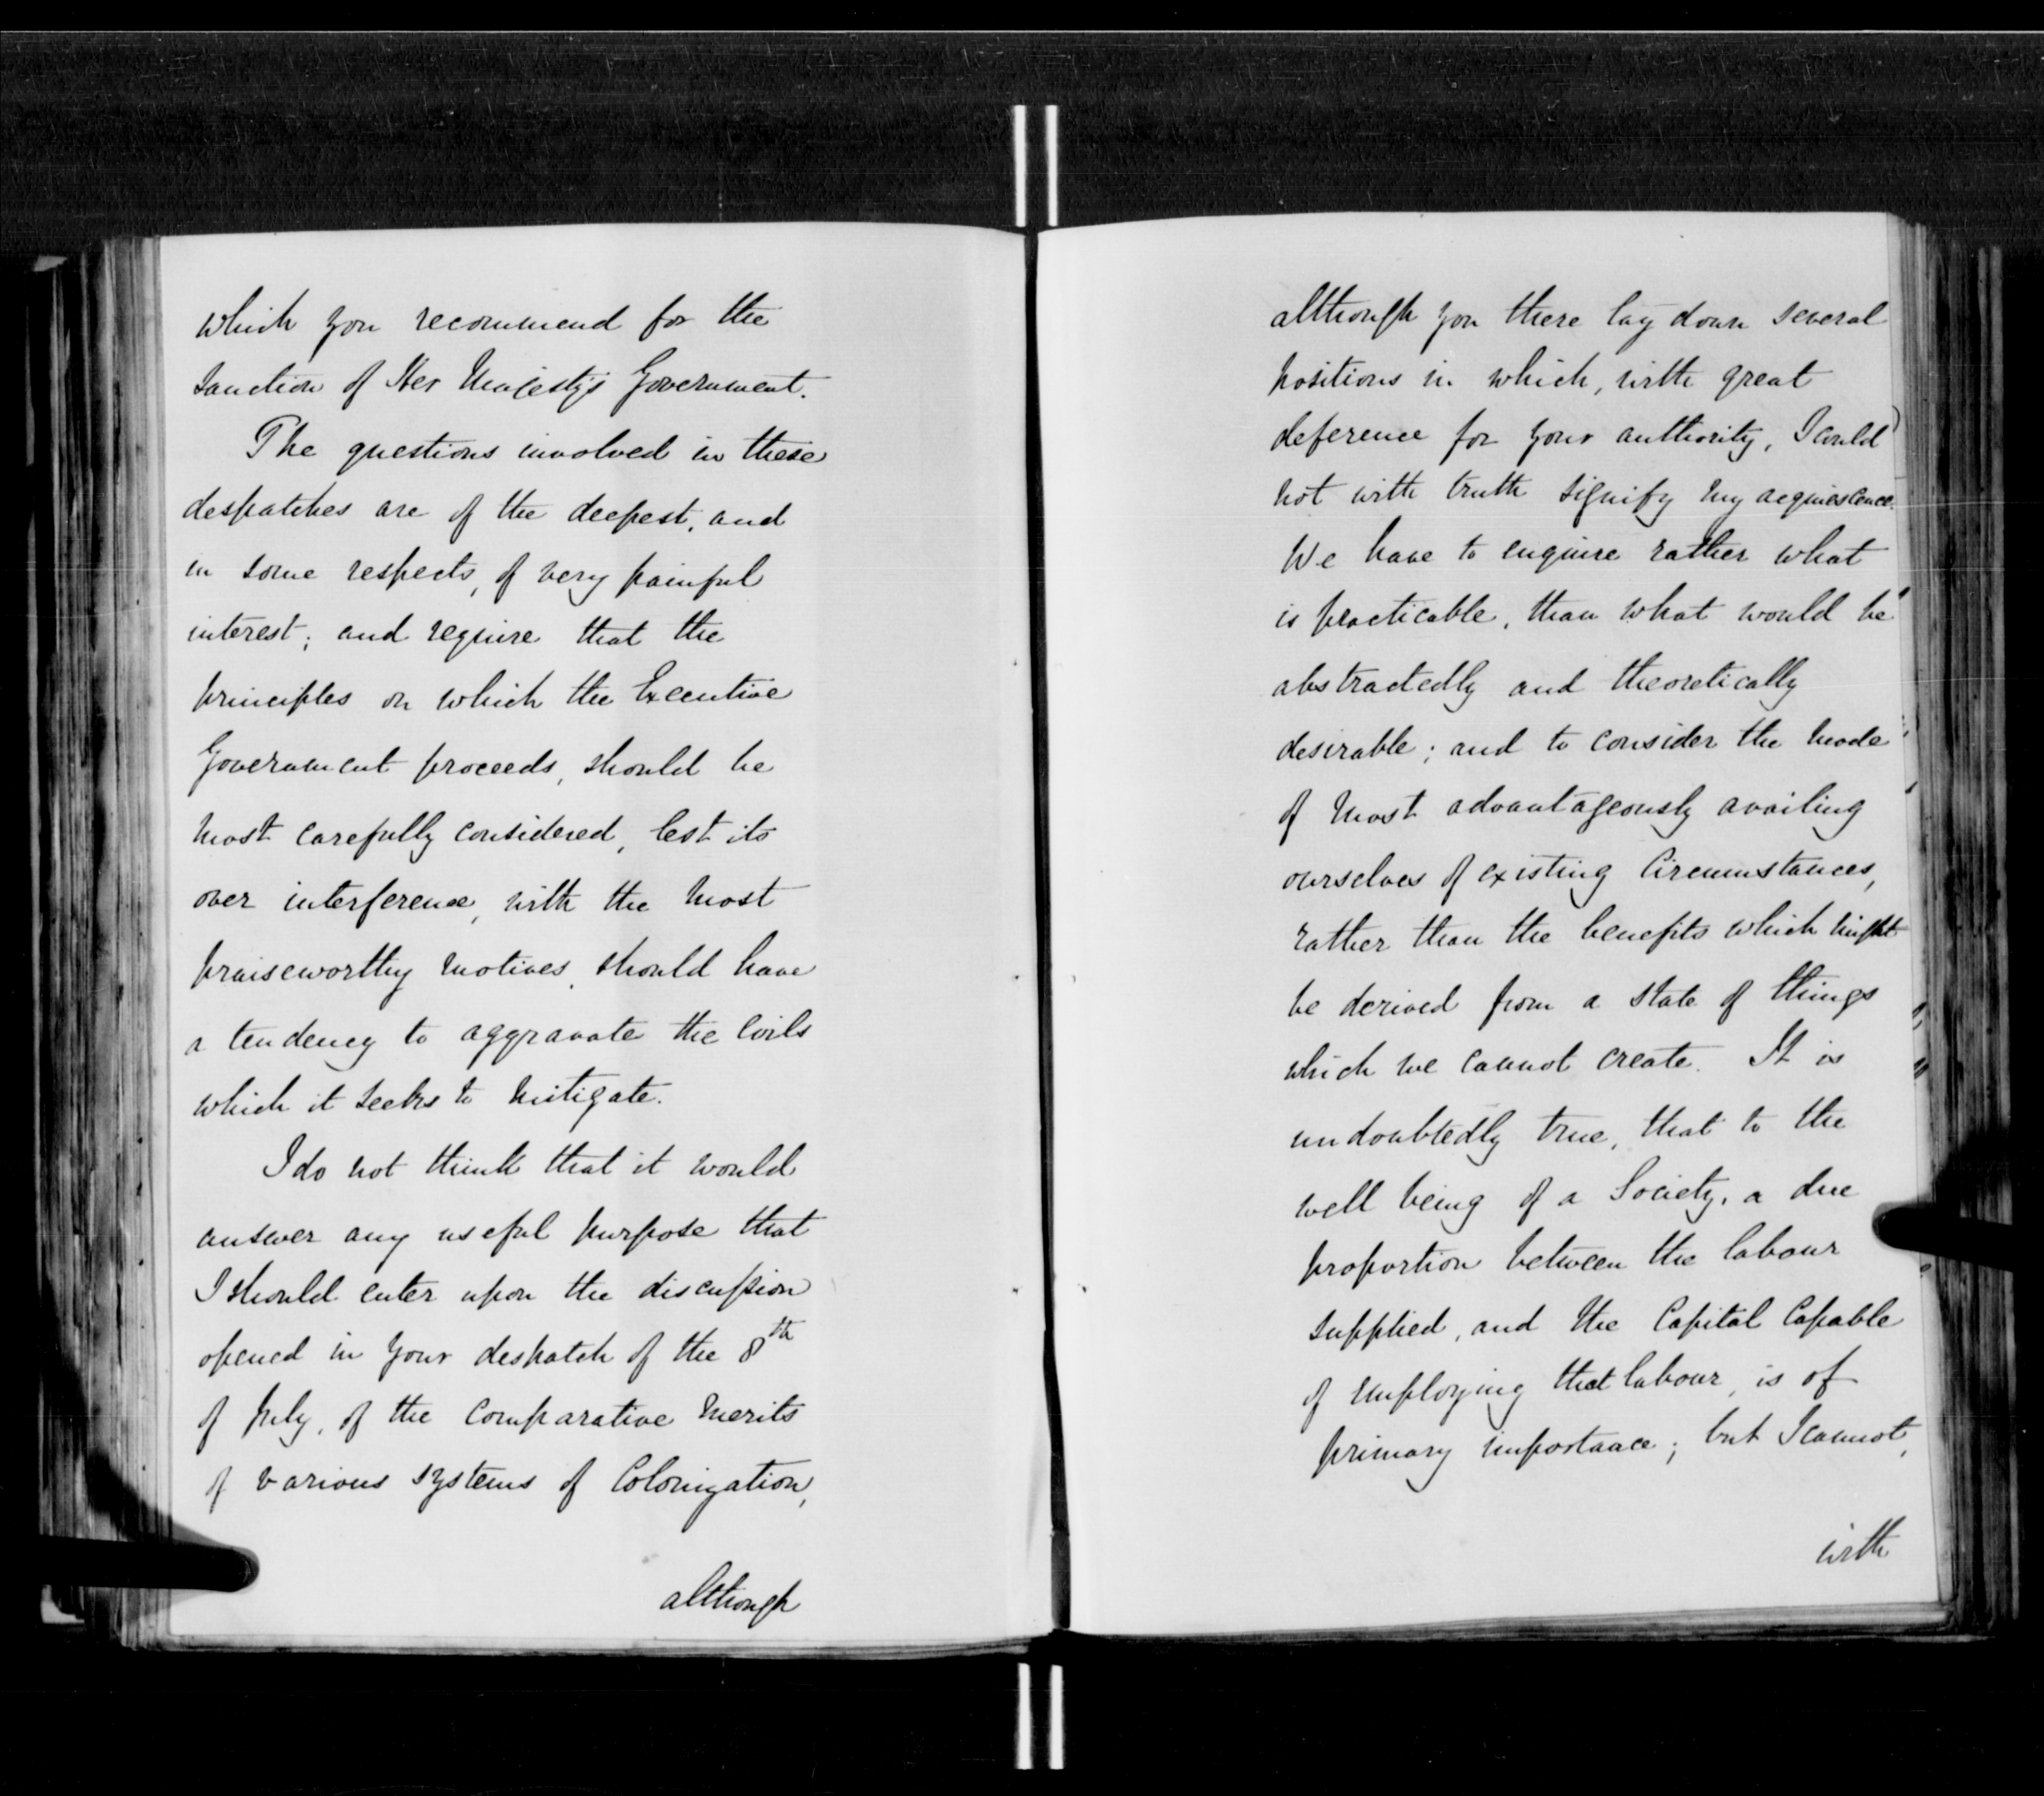 which you recommend for the
sanction of Her Majesty's Government.
The questions involved in these
despatches are of the deepest, and
in some respects, of very painful
interest; and require that the
principles on which the Executive
Government proceeds, should be
most carefully considered, lest its
over interference, with the most
praiseworthy motives, should have
a tendency to aggravate the evils
which it seeks to mitigate.
I do not think that it would
answer any useful purpose that
I should enter upon the discussion
opened in your despatch of the 8th
of July, of the comparative merits
of various systems of Colonization,
although
although you there lay down several
positions in which, with great
deference for your authority, I could
not with truth signify my acquiescence.
We have to enquire rather what
is practicable, than what would be
abstractedly and theoretically
desirable; and to consider the mode
of most advantageously availing
ourselves of existing Circumstances,
rather than the benefits which might
be derived from a state of things
which we cannot create. It is
undoubtedly true, that to the
well being of a Society, a due
proportion between the labour
supplied, and the Capital Capable
of employing that labour, is of
primary importance; but I cannot,
with